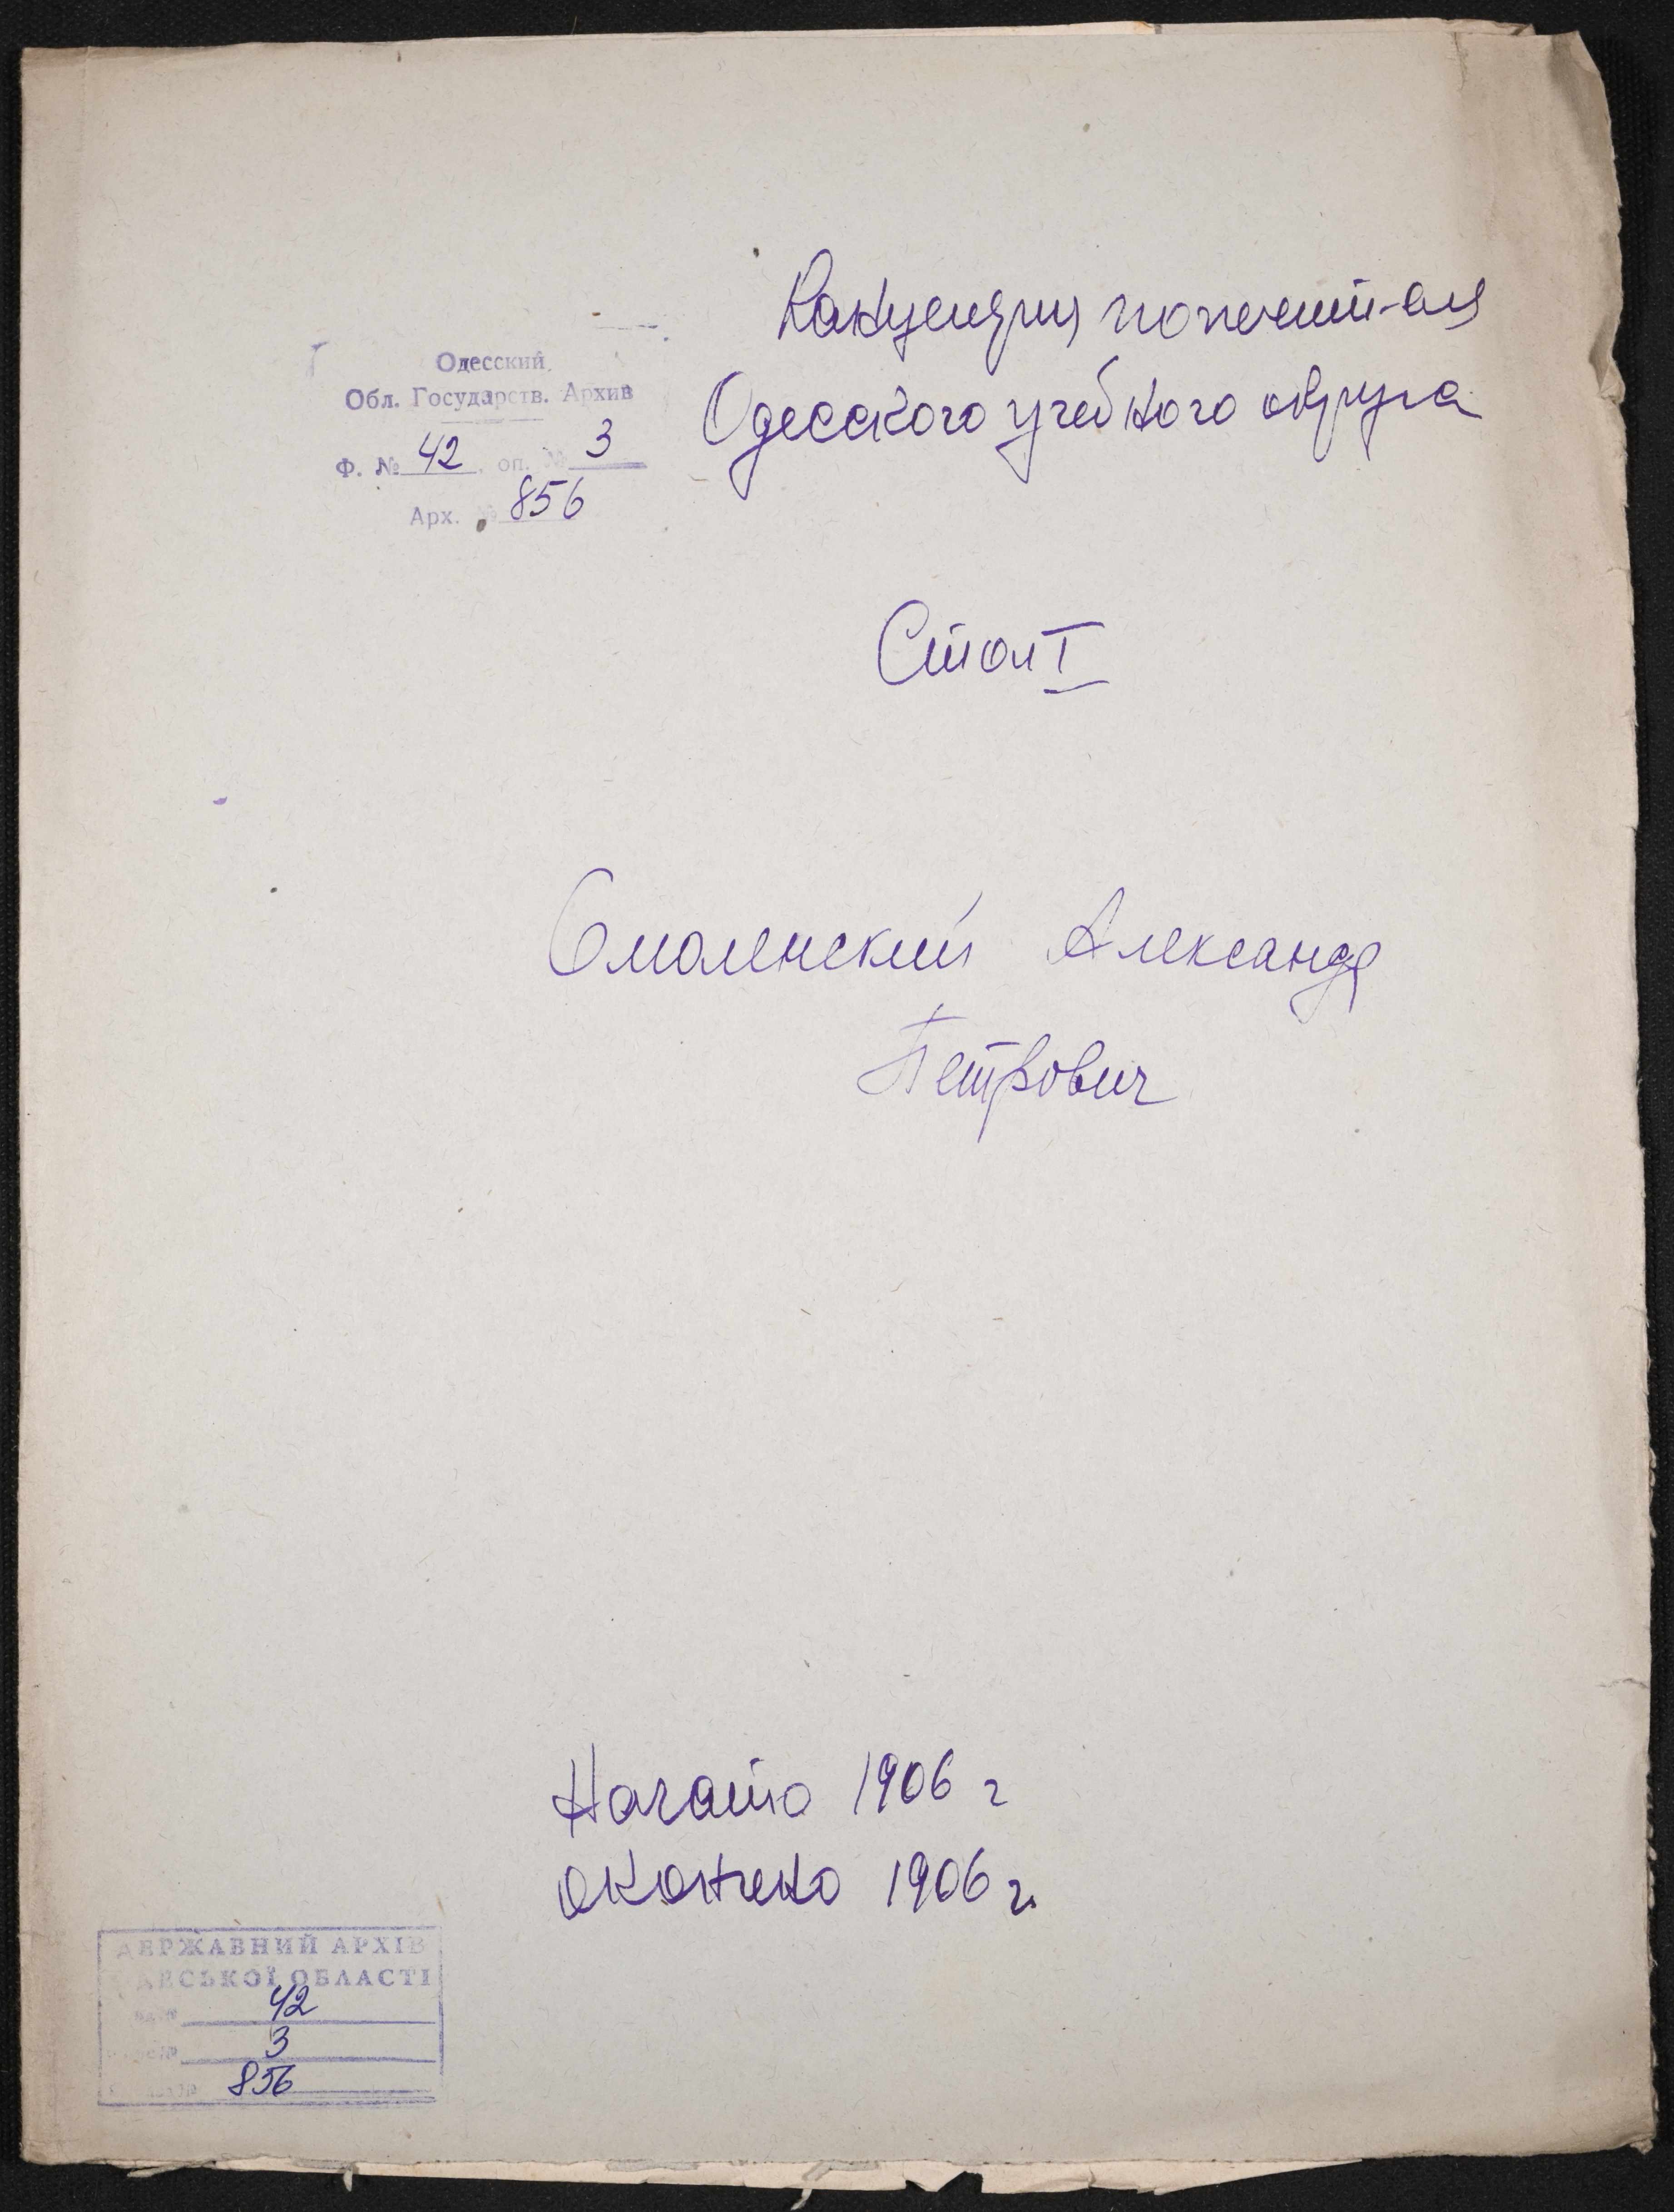 Канцелярия попечит-еля
Одесского учебного округа
Одесский
Обл. Государств. Архив
Ф. № 42, оп. № 3
Арх. № 856
Стол I
Смоленский Александр
Петрович
Начато 1906 г
окончено 1906 г.
ДЕРЖАВНИЙ АРХІВ
ОДЕСЬКОЇ ОБЛАСТІ
42
3
856